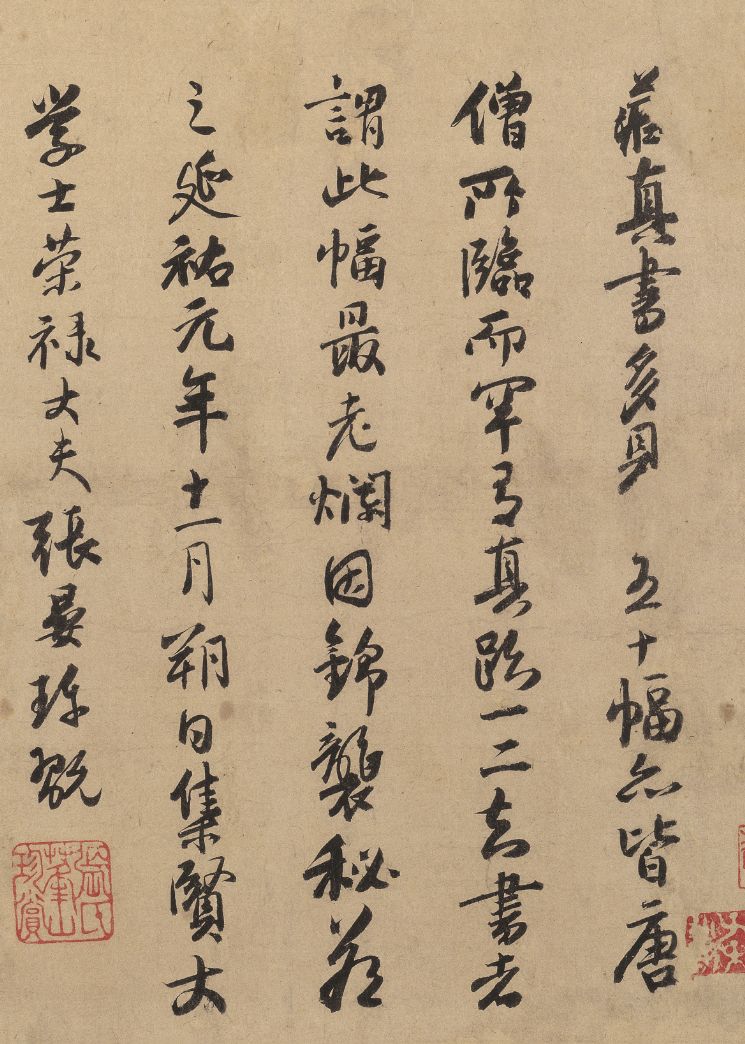 藏真書多見 五十幅亦皆唐
僧所臨而罕有真跡一二知書者
謂此幅最老爛因錦襲秘藏
之延祐元年十一月朔日集賢大
学士荣禄大夫張晏珎翫